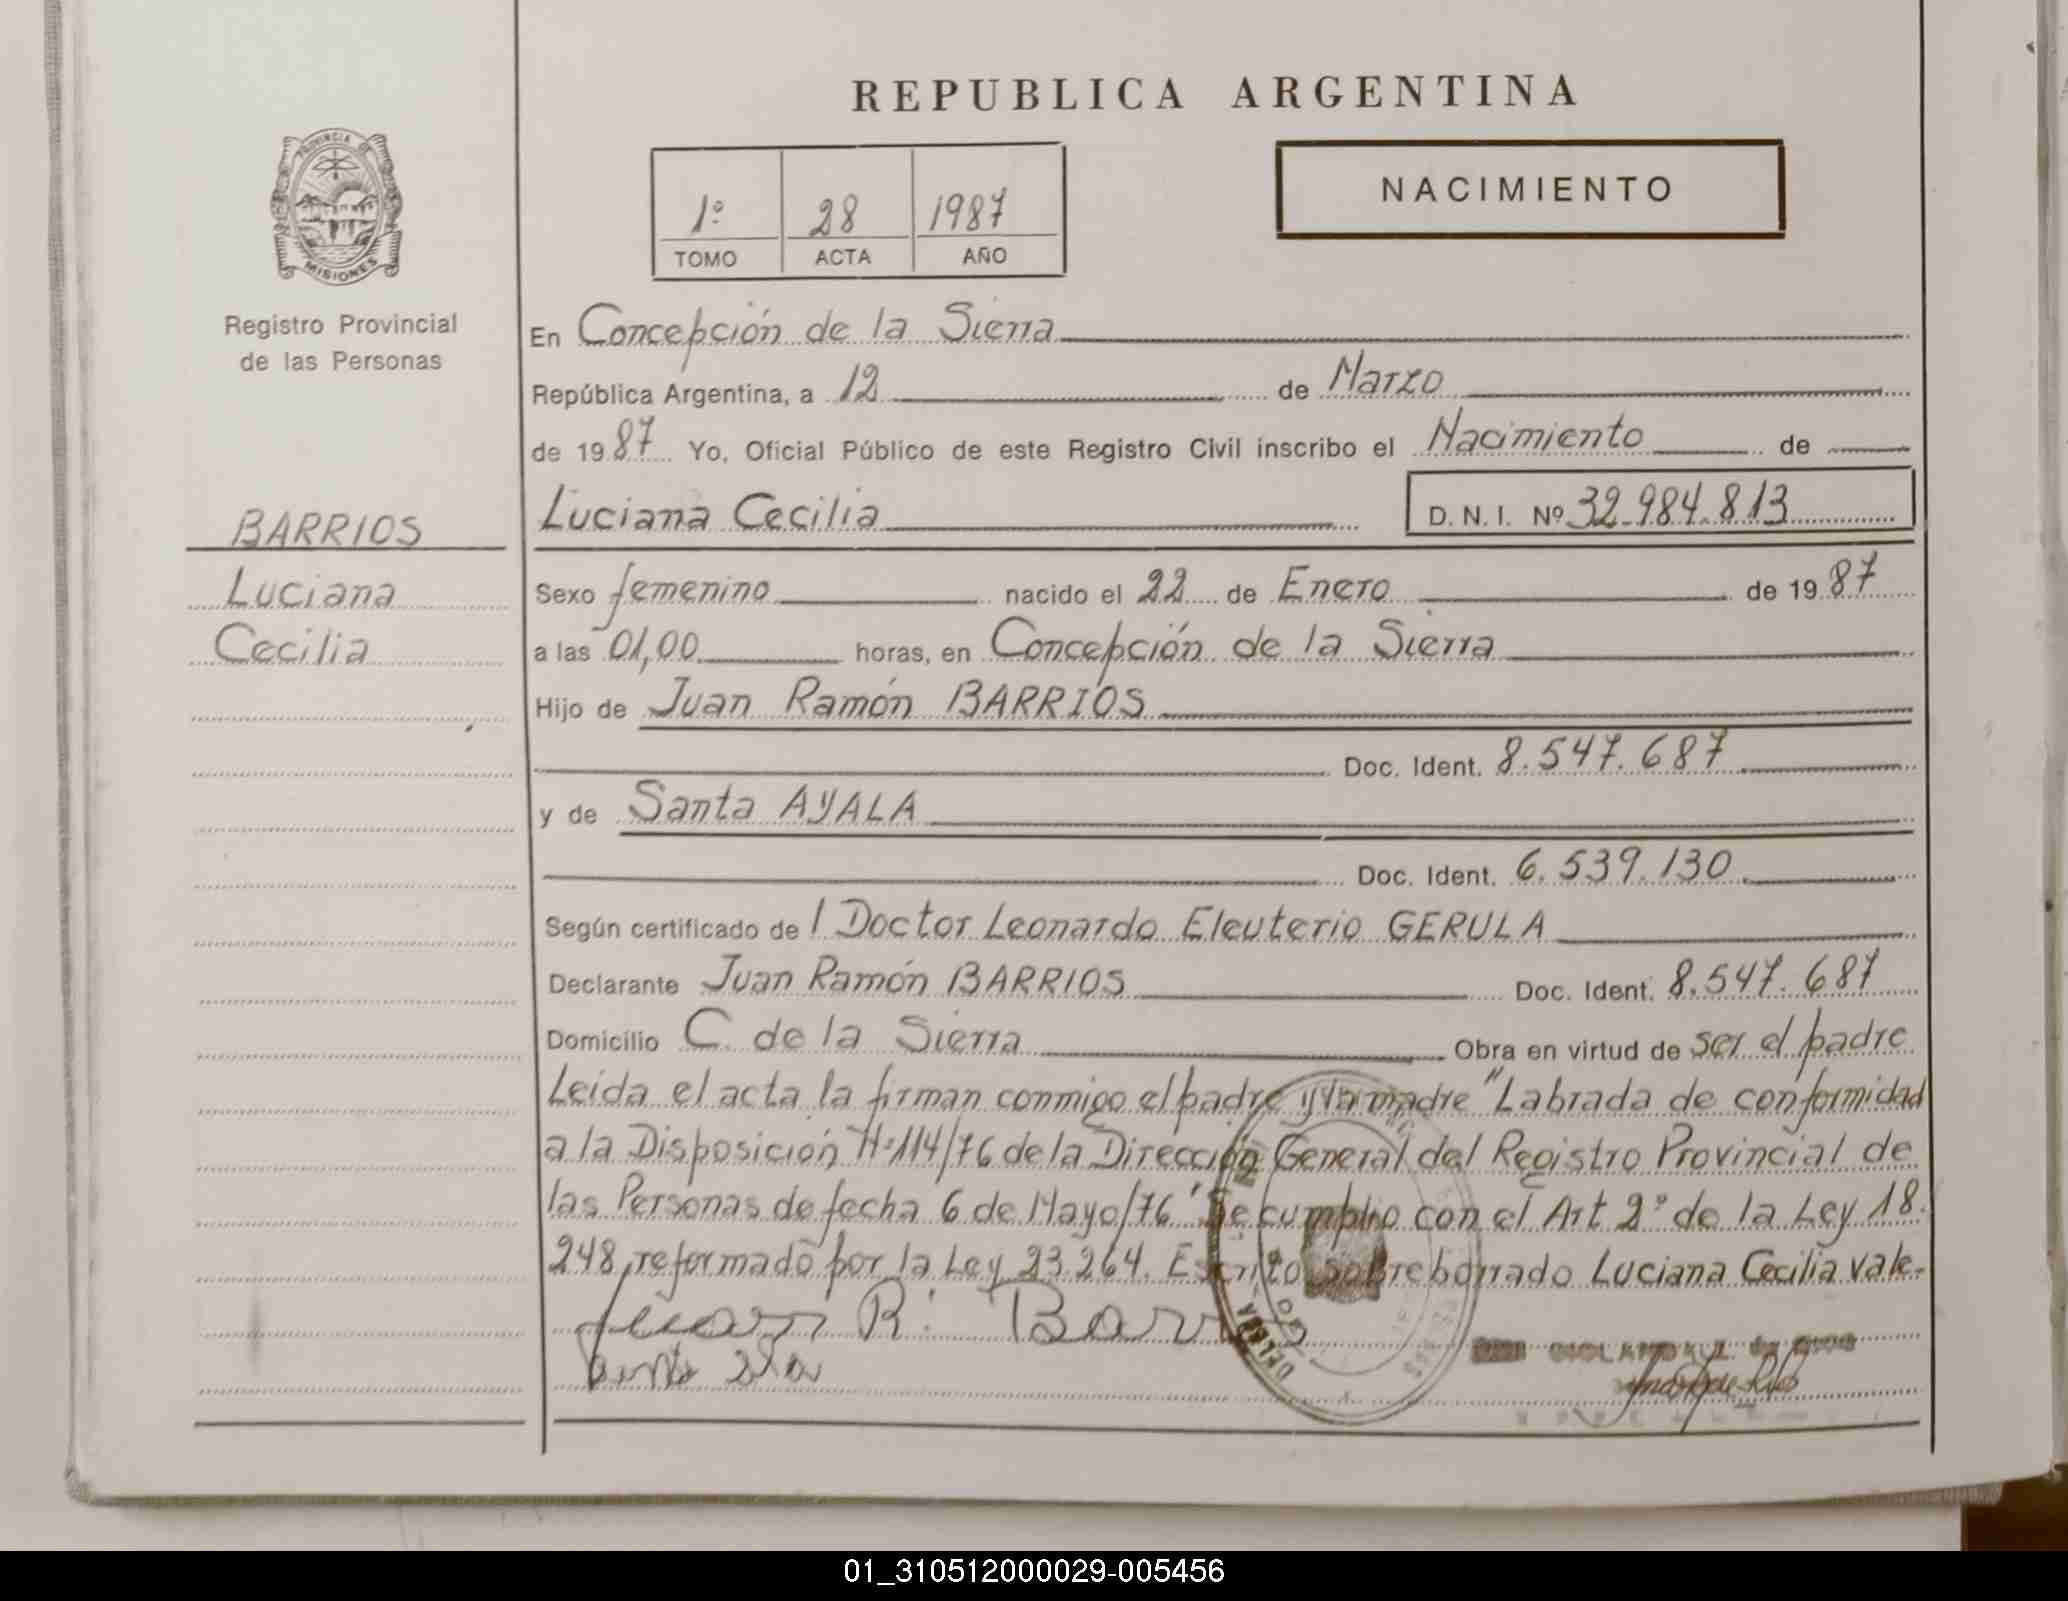 REPUBLICA ARGENTINA
PROVINCIA DE
MISIONES
Registro Provincial
de las Personas
1º 28 1987
TOMO ACTA AÑO
NACIMIENTO
En Concepción de la Sierra
República Argentina, a 12 de Marzo
de 1987 Yo, Oficial Público de este Registro Civil inscribo el Nacimiento de
Luciana Cecilia D. N. I. Nº 32.984.813
BARRIOS
Luciana
Cecilia
Sexo femenino nacido el 22 de Enero de 1987
a las 01,00 horas, en Concepción de la Sierra
Hijo de Juan Ramón BARRIOS
Doc. Ident. 8.547.687
y de Santa AYALA
Doc. Ident. 6.539.130
Según certificado de l Doctor Leonardo Eleuterio GERULA
Declarante Juan Ramón BARRIOS Doc. Ident. 8.547.687
Domicilio C. de la Sierra Obra en virtud de ser el padre
Leída el acta la firman conmigo el padre y la madre "Labrada de conformidad
a la Disposición Nº 114/76 de la Dirección General del Registro Provincial de
las Personas de fecha 6 de Mayo/76" Se cumplio con el Art 2º de la Ley 18.
248, reformado por la Ley 23.264. Escrito sobreborrado Luciana Cecilia vale.
Juan R. Barrios
01_310512000029-005456